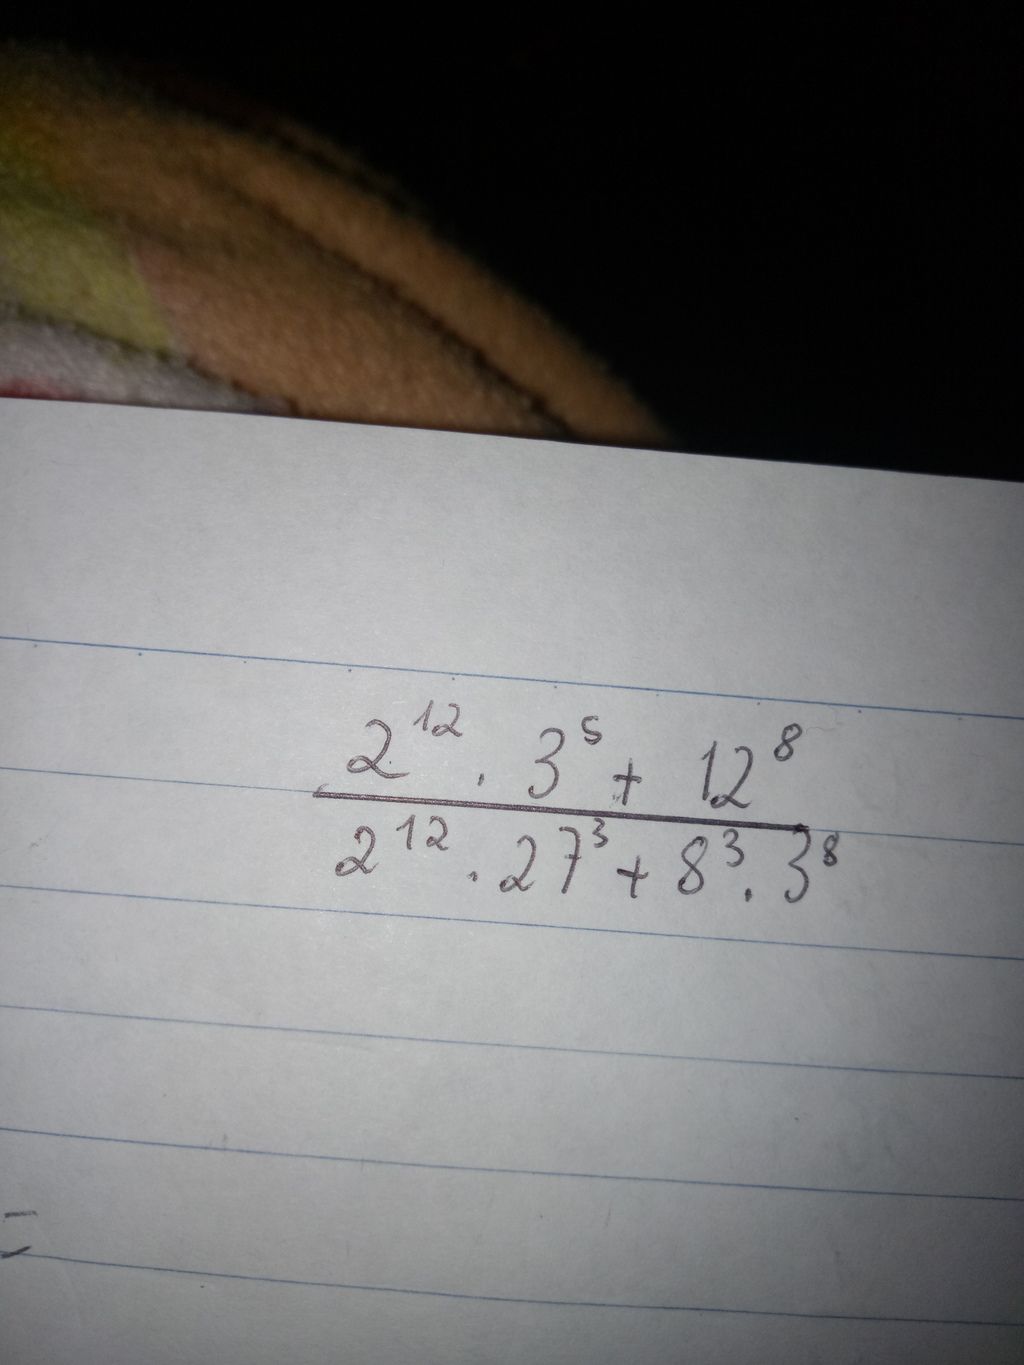 2¹² · 3⁵ + 12⁸
2¹² · 27³ + 8³ · 3⁸
=